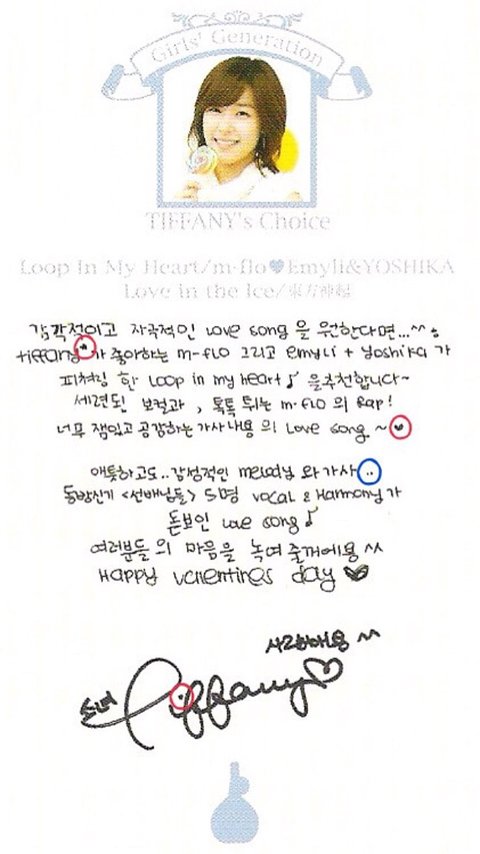 Girls' Generation
TIFFANY's Choice
Loop In My Heart/m-flo♥Emyli&YOSHIKA
Love in the Ice/東方神起
감각적이고 자극적인 Love song 을 원한다면...^^;
tiffany♥가 좋아하는 m-flo 그리고 emyli + yoshika 가
피쳐링 한 Loop in my heart♪ 을추천합니다~
세련된! 보컬과, 톡톡 튀는 m-flo 의 Rap!
너무 잼있고 공감하는 가사내용 의 Love song ~♥
애틋하고도.. 감성적인 melody 와 가사..
동방신기 <선배님들> 5명 vocal & Harmony가
돋보인 Love song♪
여러분들 의 마음을 녹여 줄꺼에용 ^^
Happy valentines day ♥
사랑해용 ^^
소녀 Tiffany♡